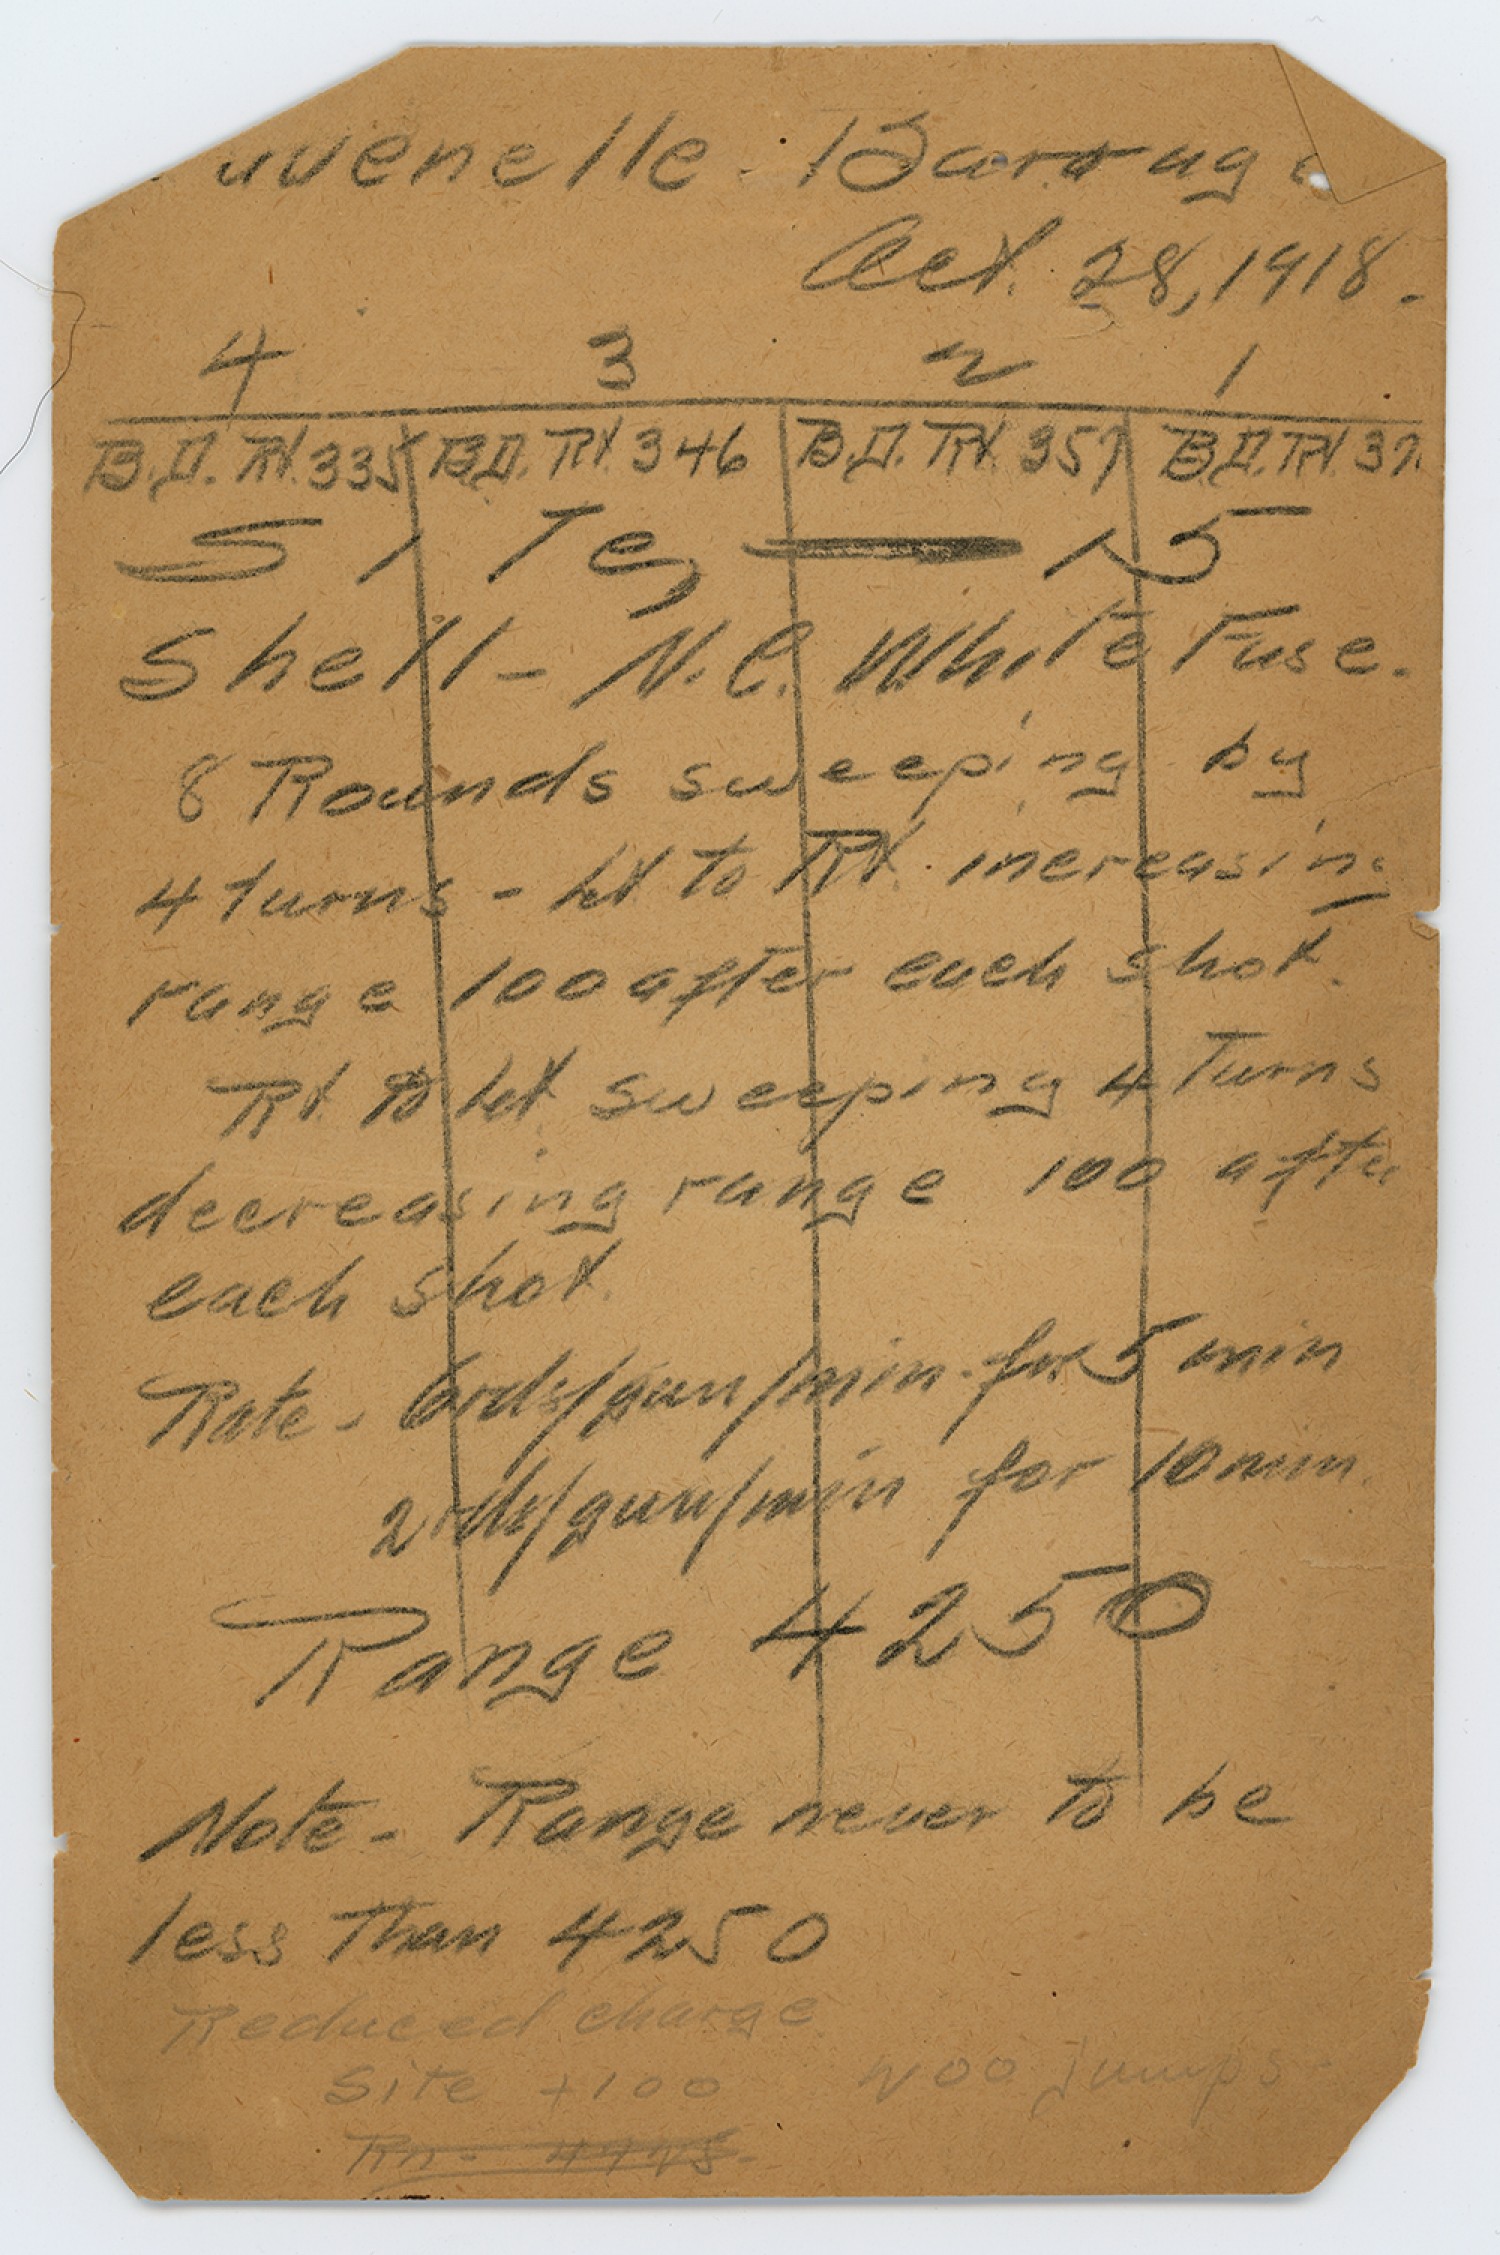 uvenelle - Barrage
Oct. 28, 1918.
4 3 2 1
B.D. Rt. 335 B.D. Rt. 346 B.D. Rt. 357 B.D. Rt. 37.
Site, — 15
Shell - N.C. White Fuse.
8 Rounds sweeping by
4 turns - Lt to Rt. increasing
range 100 after each shot.
Rt. to Lt. sweeping 4 turns
decreasing range 100 after
each shot.
Rate - 6 rds/gun/min. for 5 min
2 rds/gun/min for 10 min.
Range 4250
Note - Range never to be
less than 4250
Reduced charge
Site +100 200 jumps
Rn.